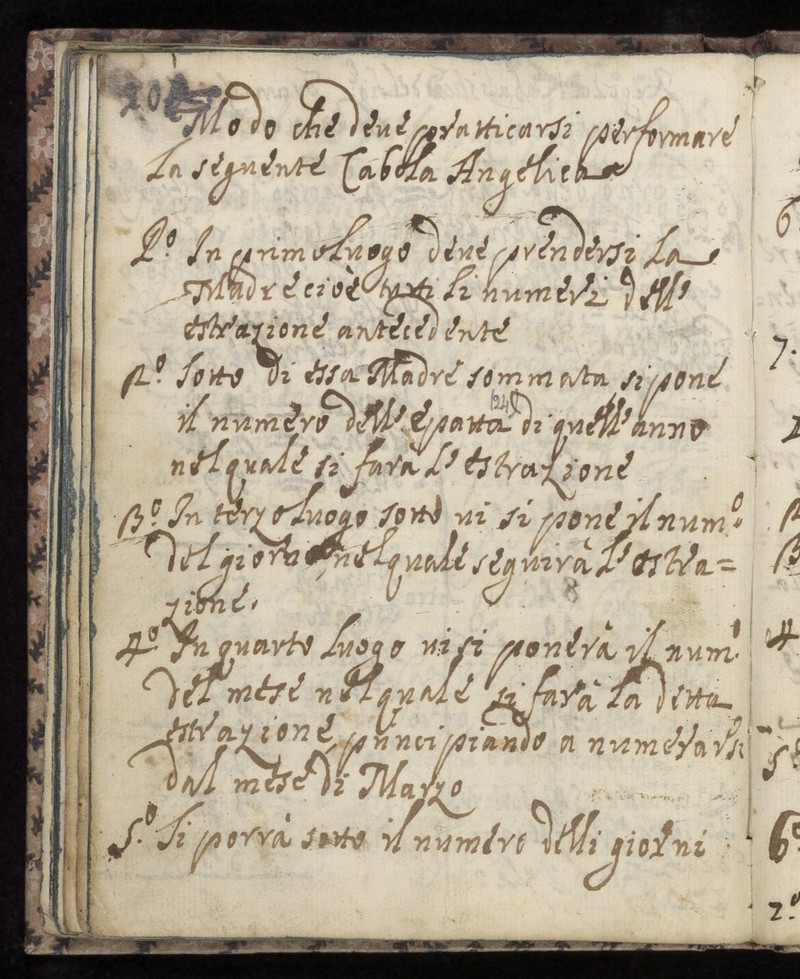 20
Modo che deue pratticarsi per formare
la seguente Cabola Angelica
P.º In primo luogo deue prendersi la
Madre cioè tutti li numeri dell'
estrazione antecedente
2.º Sotto di essa Madre sommata si pone
(24)
il numero dell'epatta di quell'anno
nel quale si farà l'estrazione
3.º In terzo luogo sotto ui si pone il num.º
del giorno nel quale seguirà l'estra=
zione.
8
4.º In quarto luogo ui si ponerà il num.º
del mese nel quale si farà la detta
estrazione principiando a numerarsi
dal mese di Marzo
5.º Si porrà sotto il numero delli giorni
6
7.
4
5
6º
2.º